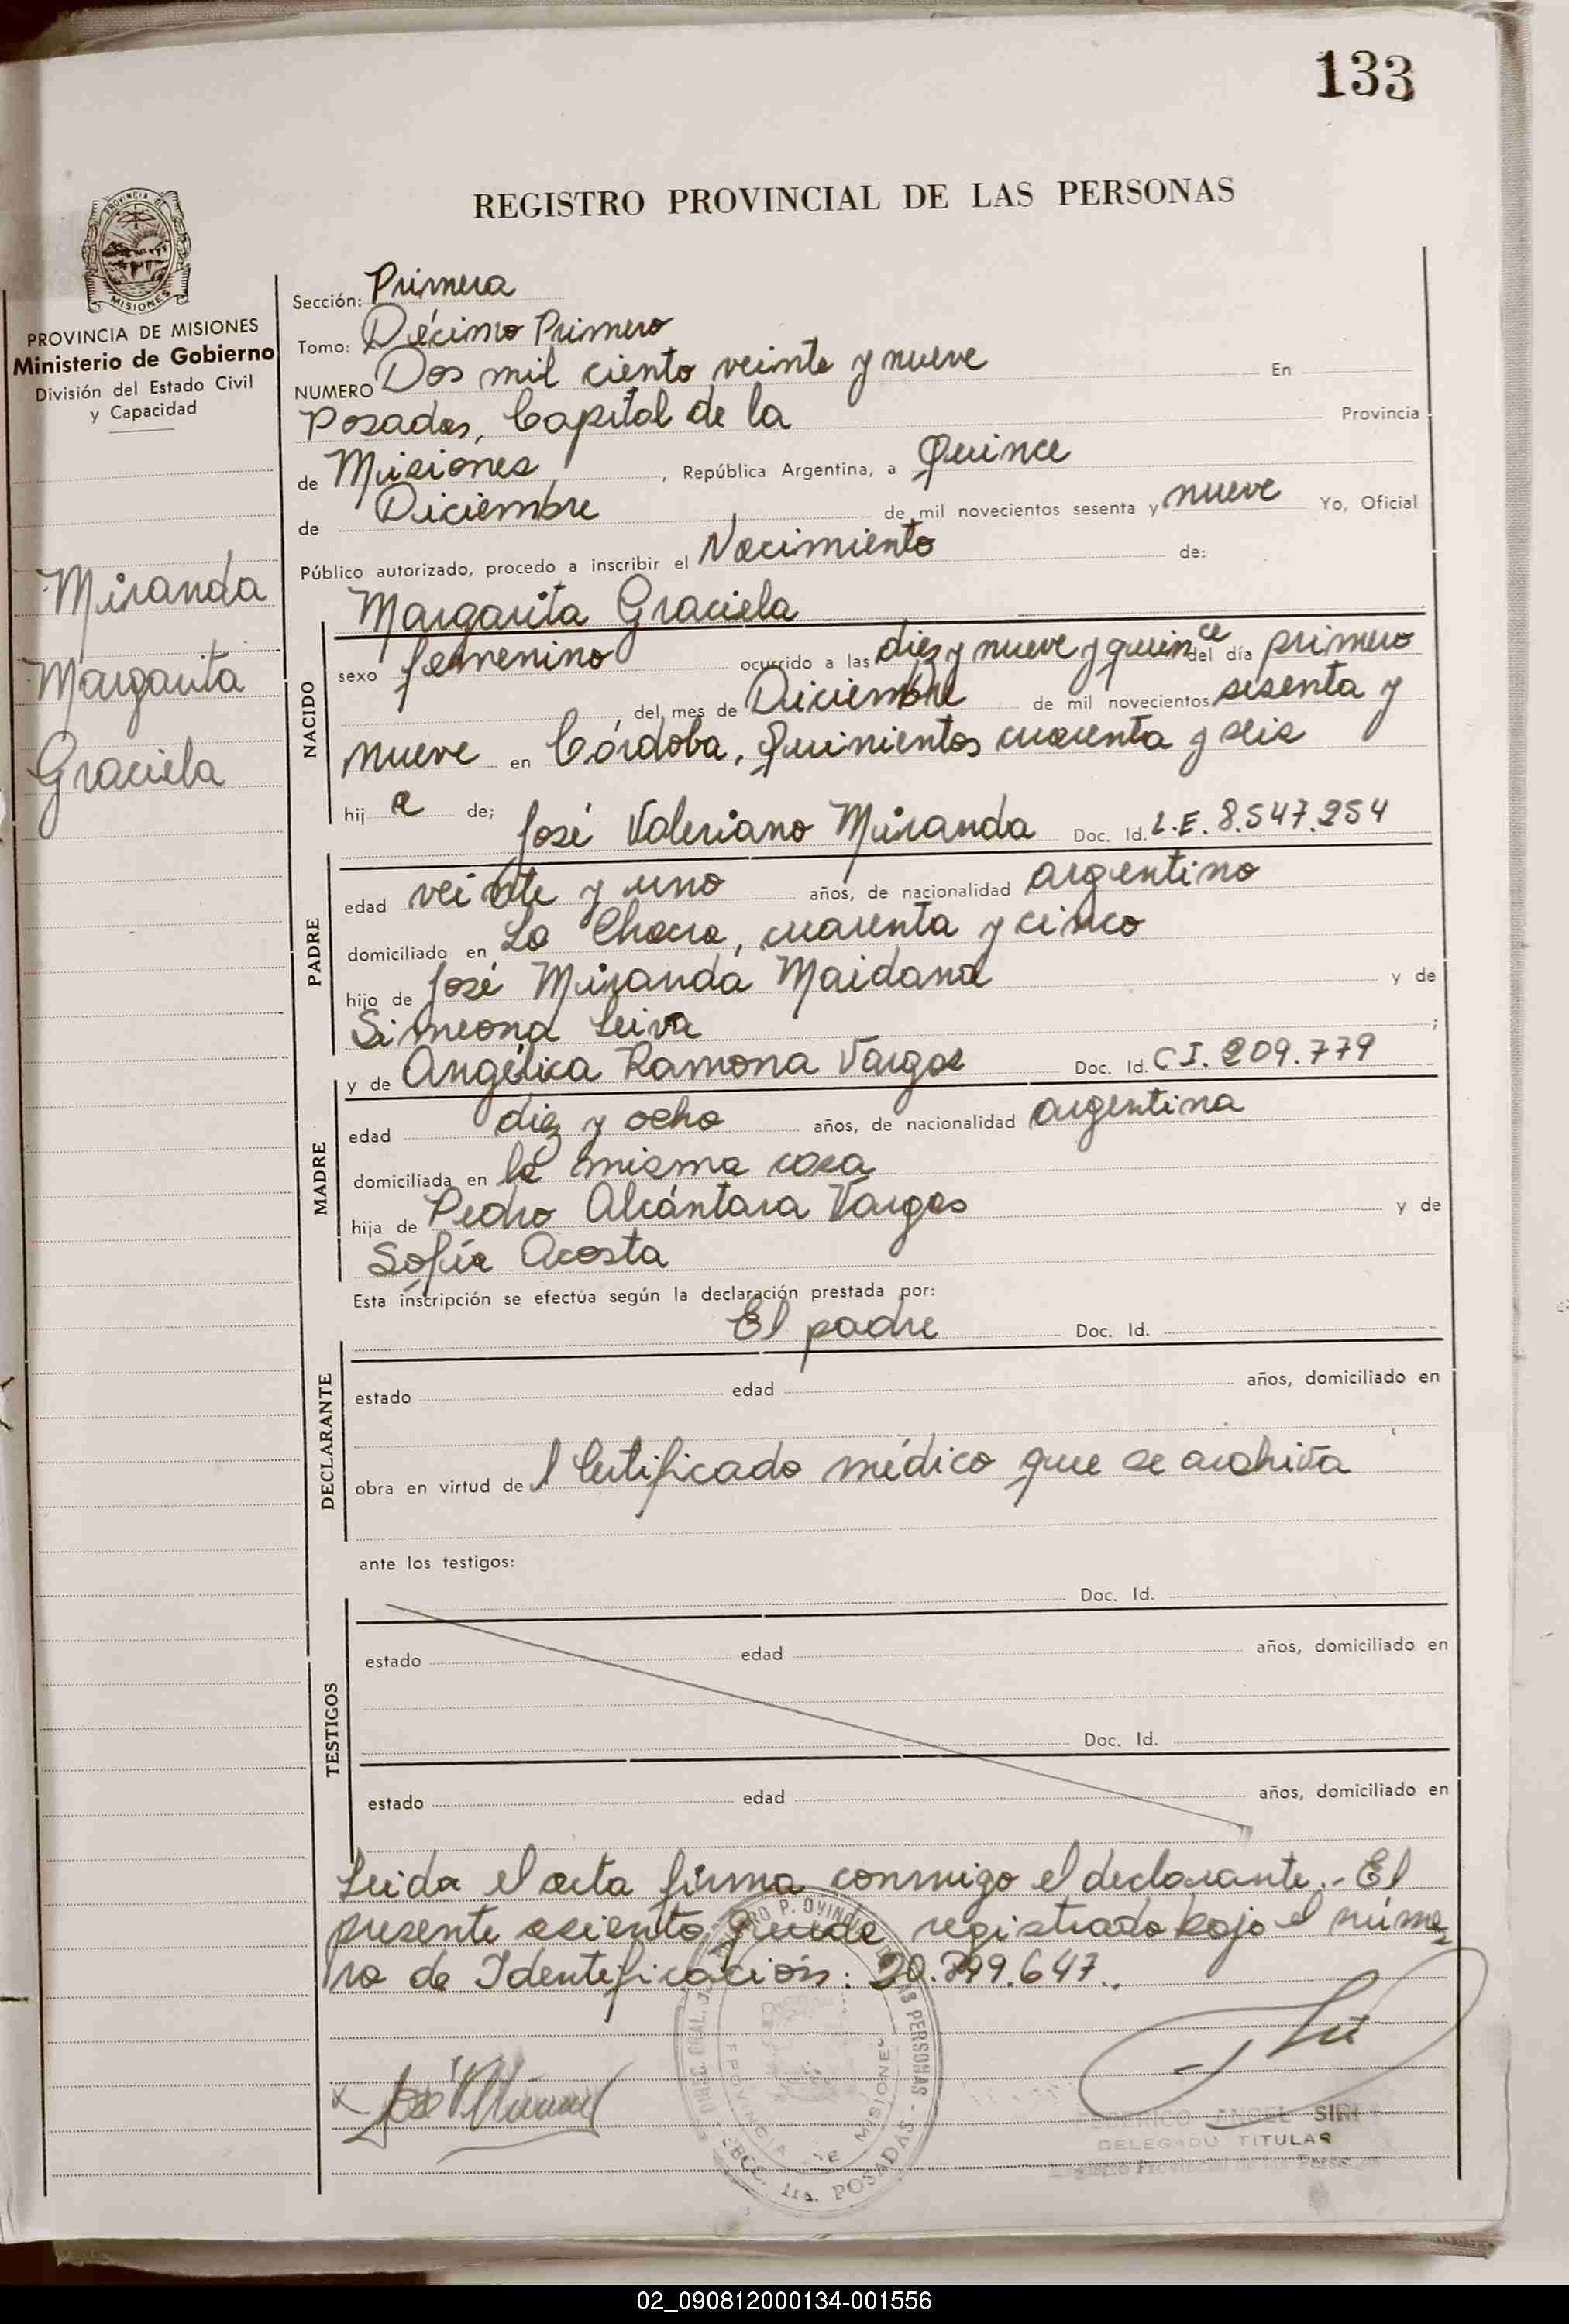 133
REGISTRO PROVINCIAL DE LAS PERSONAS
PROVINCIA DE
MISIONES
PROVINCIA DE MISIONES
Ministerio de Gobierno
División del Estado Civil
y Capacidad
Miranda
Margarita
Graciela
Sección: Primera
Tomo: Décimo Primero
NUMERO Dos mil ciento veinte y nueve En
Posadas, Capital de la Provincia
de Misiones, República Argentina, a Quince
de Diciembre de mil novecientos sesenta y nueve Yo, Oficial
Público autorizado, procedo a inscribir el Nacimiento de:
Margarita Graciela
NACIDO
sexo femenino ocurrido a las diez y nueve y quince del día primero
, del mes de Diciembre de mil novecientos sesenta y
nueve en Córdoba, Quinientos cuarenta y seis
hij a de; José Valeriano Miranda Doc. Id. L.E. 8.547.254
PADRE
edad veinte y uno años, de nacionalidad argentino
domiciliado en La Chacra, cuarenta y cinco
hijo de José Miranda Maidana y de
Simeona Leiva ;
y de Angélica Ramona Vargas Doc. Id. C.I. 209.779
MADRE
edad diez y ocho años, de nacionalidad argentina
domiciliada en la misma casa
hija de Pedro Alcántara Vargas y de
Sofía Acosta
Esta inscripción se efectúa según la declaración prestada por:
El padre Doc. Id.
DECLARANTE
estado edad años, domiciliado en
obra en virtud de l Certificado médico que se archiva
ante los testigos:
Doc. Id.
TESTIGOS
estado edad años, domiciliado en
Doc. Id.
estado edad años, domiciliado en
Leida el acta firma conmigo el declarante.- El
presente asiento quede registrado bajo el núme
ro de Identificación: 20.799.647.
PERSONAS
PROVINCIA DE MISIONES
POSADAS
ANGEL SIRI
DELEGADO TITULAR
Provincial de las Personas
02_090812000134-001556